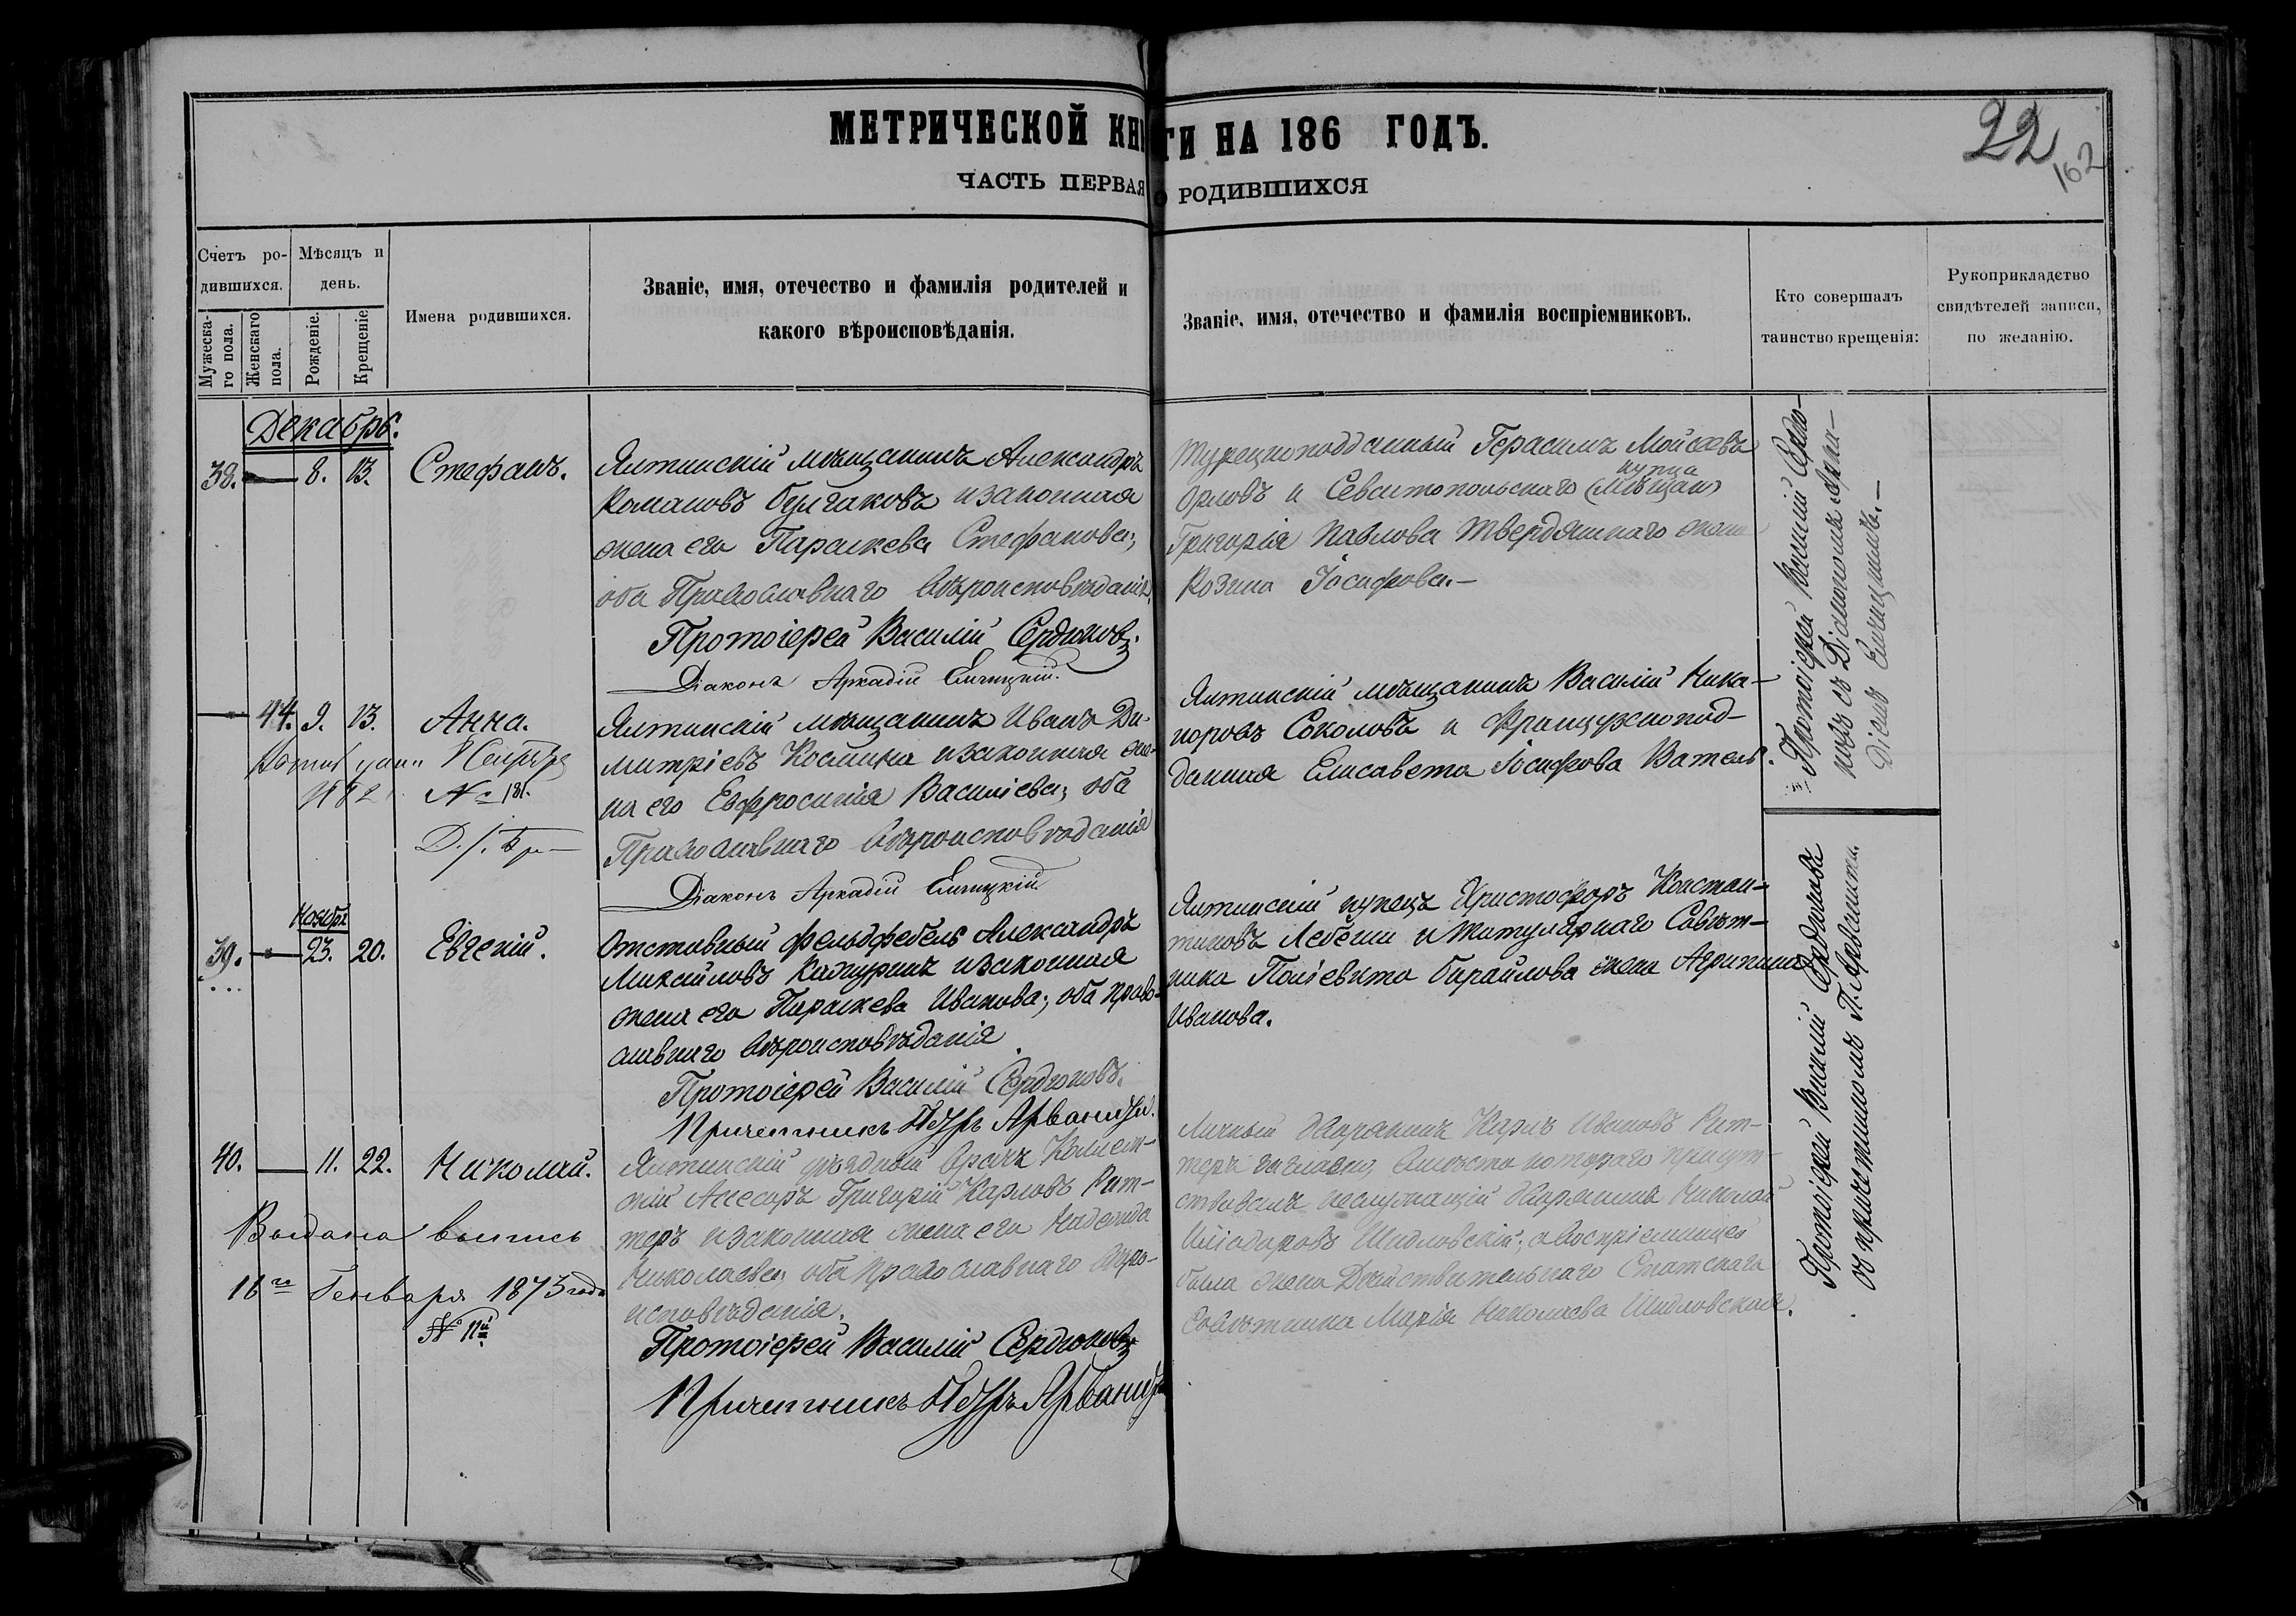 МЕТРИЧЕСКОЙ КНИГИ НА 186 ГОДЪ.
22
162
ЧАСТЬ ПЕРВАЯ О РОДИВШИХСЯ
Счетъ ро-
дившихся.
Мужеска-
го пола.
Женскаго
пола.
Мѣсяцъ и
день.
Рожденіе.
Крещеніе
Имена родившихся.
Званіе, имя, отчество и фамилія родителей и
какого вѣроисповѣданія.
Званіе, имя, отчество и фамилія воспріемниковъ.
Кто совершалъ
таинство крещенія:
Рукоприкладство
свидѣтелей записи,
по желанію.
Декабрь.
38. 8. 13. Стефанъ.
Ялтинскій мѣщанинъ Александръ
Романовъ Булгаковъ и законная
жена его Параскева Стефанова;
оба Православнаго Вѣроисповѣданія.
Протоіерей Василій Сердюковъ.
Діаконъ Аркадій
Турецкоподданный Герасимъ Мойсеевъ
Орловъ и Севастопольскаго купца (мѣщан)
Григорія Павлова жена
Розина Іосифова.—
Протоіерей Василій Сердю-
ковъ съ Діакономъ Арка-
діемъ
44. 9. 13. Анна.
№ 181.
Ялтинскій мѣщанинъ Иванъ Ди-
митріевъ Космина и законная же-
на его Евфросинія Василіева; оба
Православнаго Вѣроисповѣданія
Діаконъ Аркадій
Ялтинскій мѣщанинъ Василій Ника-
норовъ Соколовъ и Французскопод-
данная Елисавета Іосифова Ватель.
Ноября
39. 23. 20. Евгеній.
Отставный фельдфебель Александръ
Михайловъ и законная
жена его Параскева Иванова; оба право-
славнаго вѣроисповѣданія
Протоіерей Василій Сердюковъ.
Причетникъ Петръ Арванити.
Ялтинскій купецъ Христофоръ Констан-
тиновъ и Титулярнаго Совѣт-
ника жена Агрипина
Иванова.
Протоіерей Василій Сердюковъ
съ причетникомъ П. Арванити.
40. 11. 22. Николай.
Выдана выпись
16го Генваря 1873 года
№ 11й
Ялтинскій уѣздный Врачъ Коллеж-
скій Ассесоръ Григорій Карловъ Рит-
теръ и законная жена его Надежда
Николаева; оба православнаго вѣро-
исповѣданія.
Протоіерей Василій Сердюковъ
Причетникъ Петръ Арванити
Личный Дворянинъ Карлъ Ивановъ Рит-
теръ заглазно, вмѣсто котораго присут-
ствовалъ неслужащій Дворянинъ Николай
Иліодоровъ Шидловскій; а воспріемницей
была жена Дѣйствительнаго Статскаго
Совѣтника Марія Николаева Шидловская.